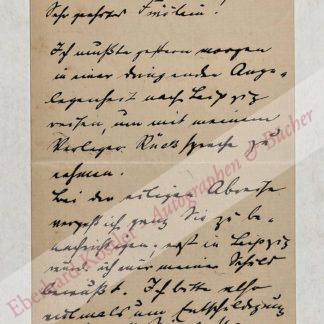 Sehr geehrtes Fräulein!
Ich mußte gestern morgen
in einer dringenden Ange-
legenheit nach Leipzig
reisen, um mit meinem
Verleger Rücksprache zu
nehmen.
Bei der eiligen Abreise
vergaß ich ganz Sie zu be-
nachrichtigen, erst in Leipzig
wurde ich mir meiner Schuld
bewußt. Ich bitte also
vielmals um Entschuldigung
Eberhard Köstler Autographen & Bücher